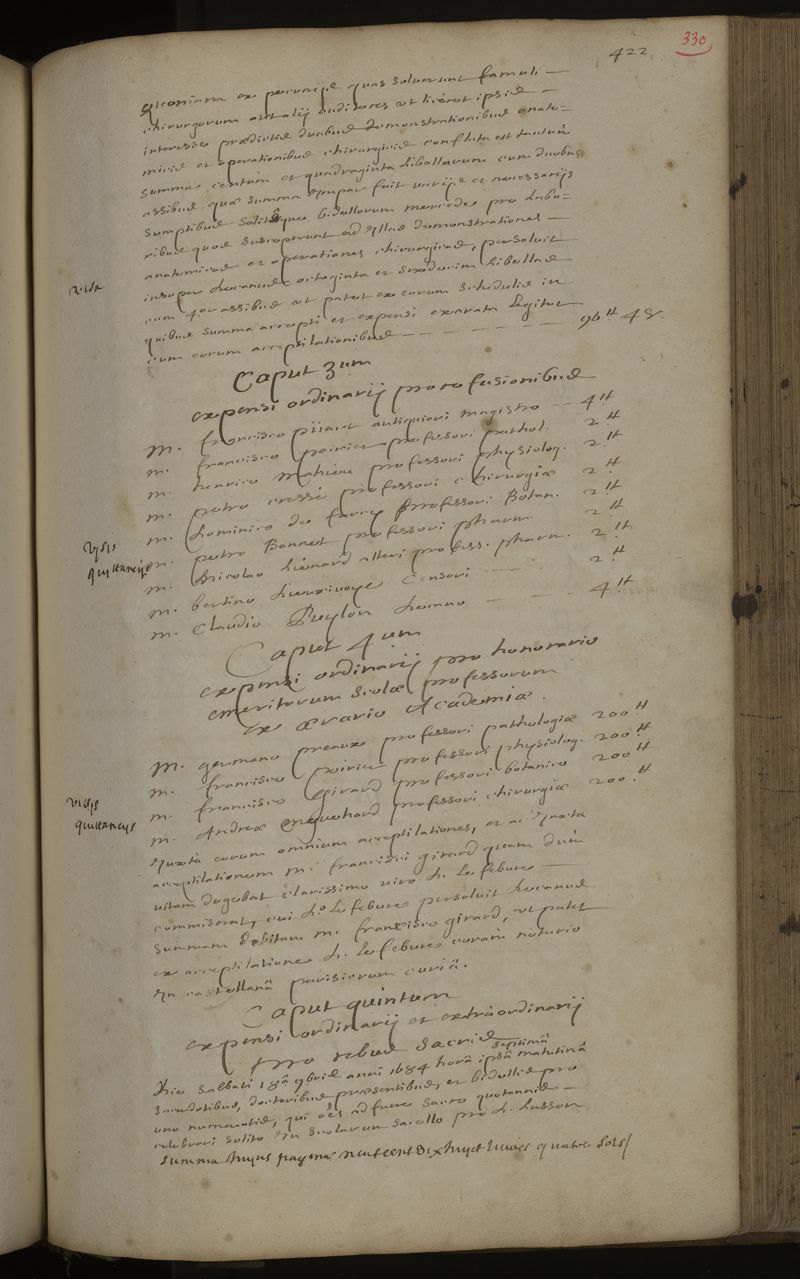 422.
330
ex pecuniis quas solverunt famuli —
chirurgorum aut alii auditores ut liceret ipsis —
interesse praedictis duabus demonstrationibus anato=
micis et operationibus chirurgicis conflata est tantum
summa centum et quadraginta libellarum cum duobus
assibus quae summa impar fuit variis et necessariis
sumptibus bidellorum mercedes pro labo=
ribus quos susceperunt ad illas demonstrationes —
anatomicas et operationes chirurgicas, persoluit
visa
insuper decanus octoginta et sexdecim libellas
cum 4or assibus ut patet ex eorum schedulis in
quibus summa accepti et expensi exarata legitur
cum eorum acceptilationibus — — — — — — 96tt 4s.
Caput 3um
expensi ordinarij pro refusionibus
m. francisco pijart antiquiori magistro — 4tt
m. francisco poirier professori pathol. 2tt
m. henrico mahieu professori physiolog. 2tt
m. petro cressé professori chirurgiae 2tt
m. Dominico de farcy professori Botan. 2tt
visis
quittanciis
m. petro Bonnet professori pharm. 2tt
m. Nicolao Liénard alteri profess. pharm. 2tt
m. bertino Dieuxivoye Censori — — 2tt
m. Claudio Puylon decano — — — 4tt
Caput 4um
expensi ordinarij pro honorario
emeritorum scolae professorum
ex aerario Academiae.
m. germano preaux professori pathologiae 200tt
m. francisco poirier professori physiolog. 200tt
m. francisco Girard professori botanico 200tt
visis
quittanciis
m. Andreae Enguehard professori chirurgiae 200tt
Juxta eorum omnium acceptilationes, et ac Juxta
acceptilationem m. francisci girard quam dum
vitam degebat clarissimo viro d. Le febure —
commiserat, cui do Le febure persoluit decanus
summam debitam m. francisco girard, ut patet
ex acceptilatione d. Le febure coram notario
In castellana parisiorum curiâ.
Caput quintum
expensi ordinarij et extraordinarij
pro rebus sacris
die sabbati 18a 9bris anni 1684 horâ ipsâ septimâ matutinâ
sacerdotibus, doctoribus praesentibus, et bidellis pro
uno numeratis, qui oes adfuere sacro quotannis —
celebrari solito In scolarum sacello pro d. Lusson
Summa huius paginae neuf cent dix huict livres quatre sols